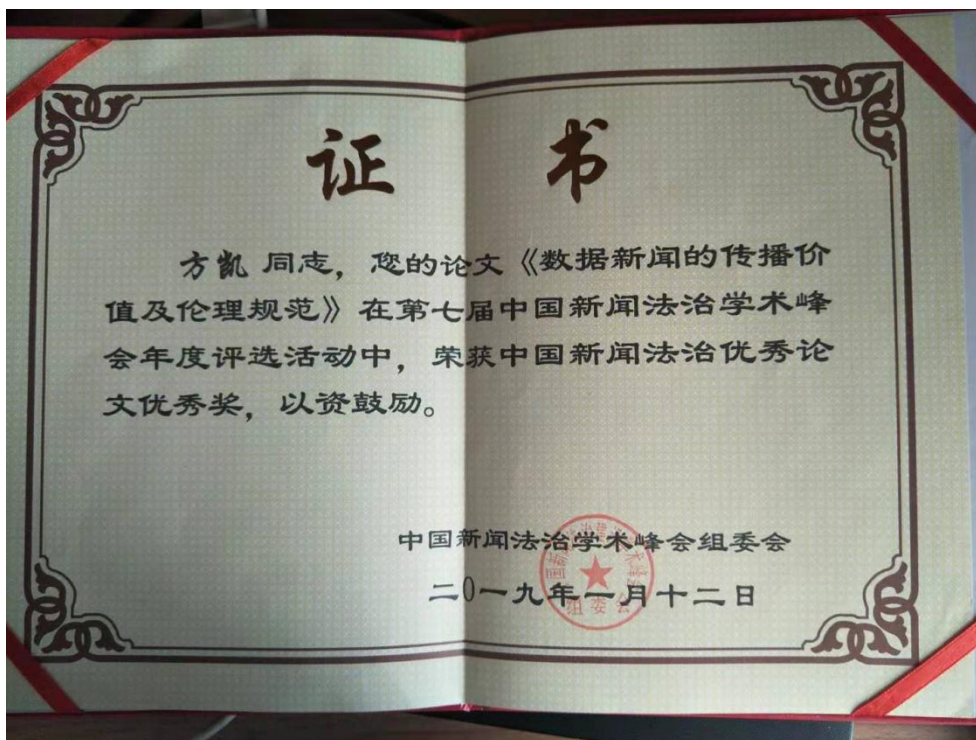 证 书
方凯 同志，您的论文《数据新闻的传播价
值及伦理规范》在第七届中国新闻法治学术峰
会年度评选活动中，荣获中国新闻法治优秀论
文优秀奖，以资鼓励。
中国新闻法治学术峰会组委会
二0一九年一月十二日
组委会